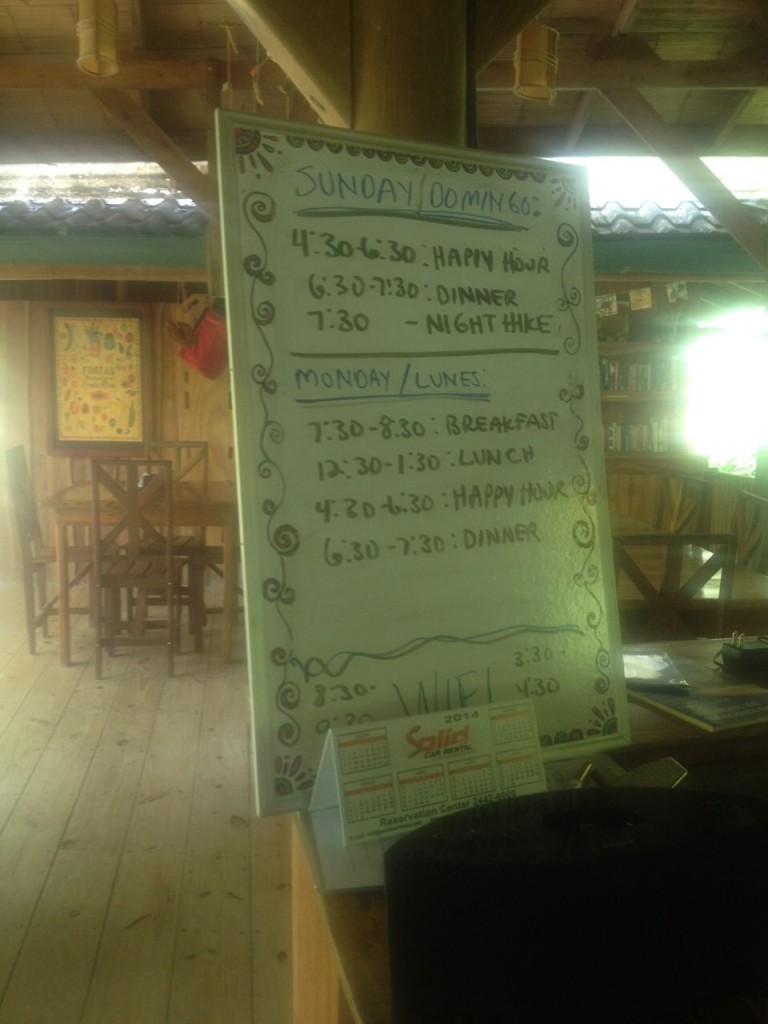 SUNDAY/DOMINGO:
4:30-6:30: HAPPY HOUR
6:30-7:30: DINNER
7:30 - NIGHT HIKE
MONDAY/LUNES:
7:30-8:30: BREAKFAST
12:30-1:30: LUNCH
4:30-6:30: HAPPY HOUR
6:30-7:30: DINNER
8:30-
WIFI
3:30-
4:30
2014
Solid
CAR RENTAL
Reservation Center
FRUTAS